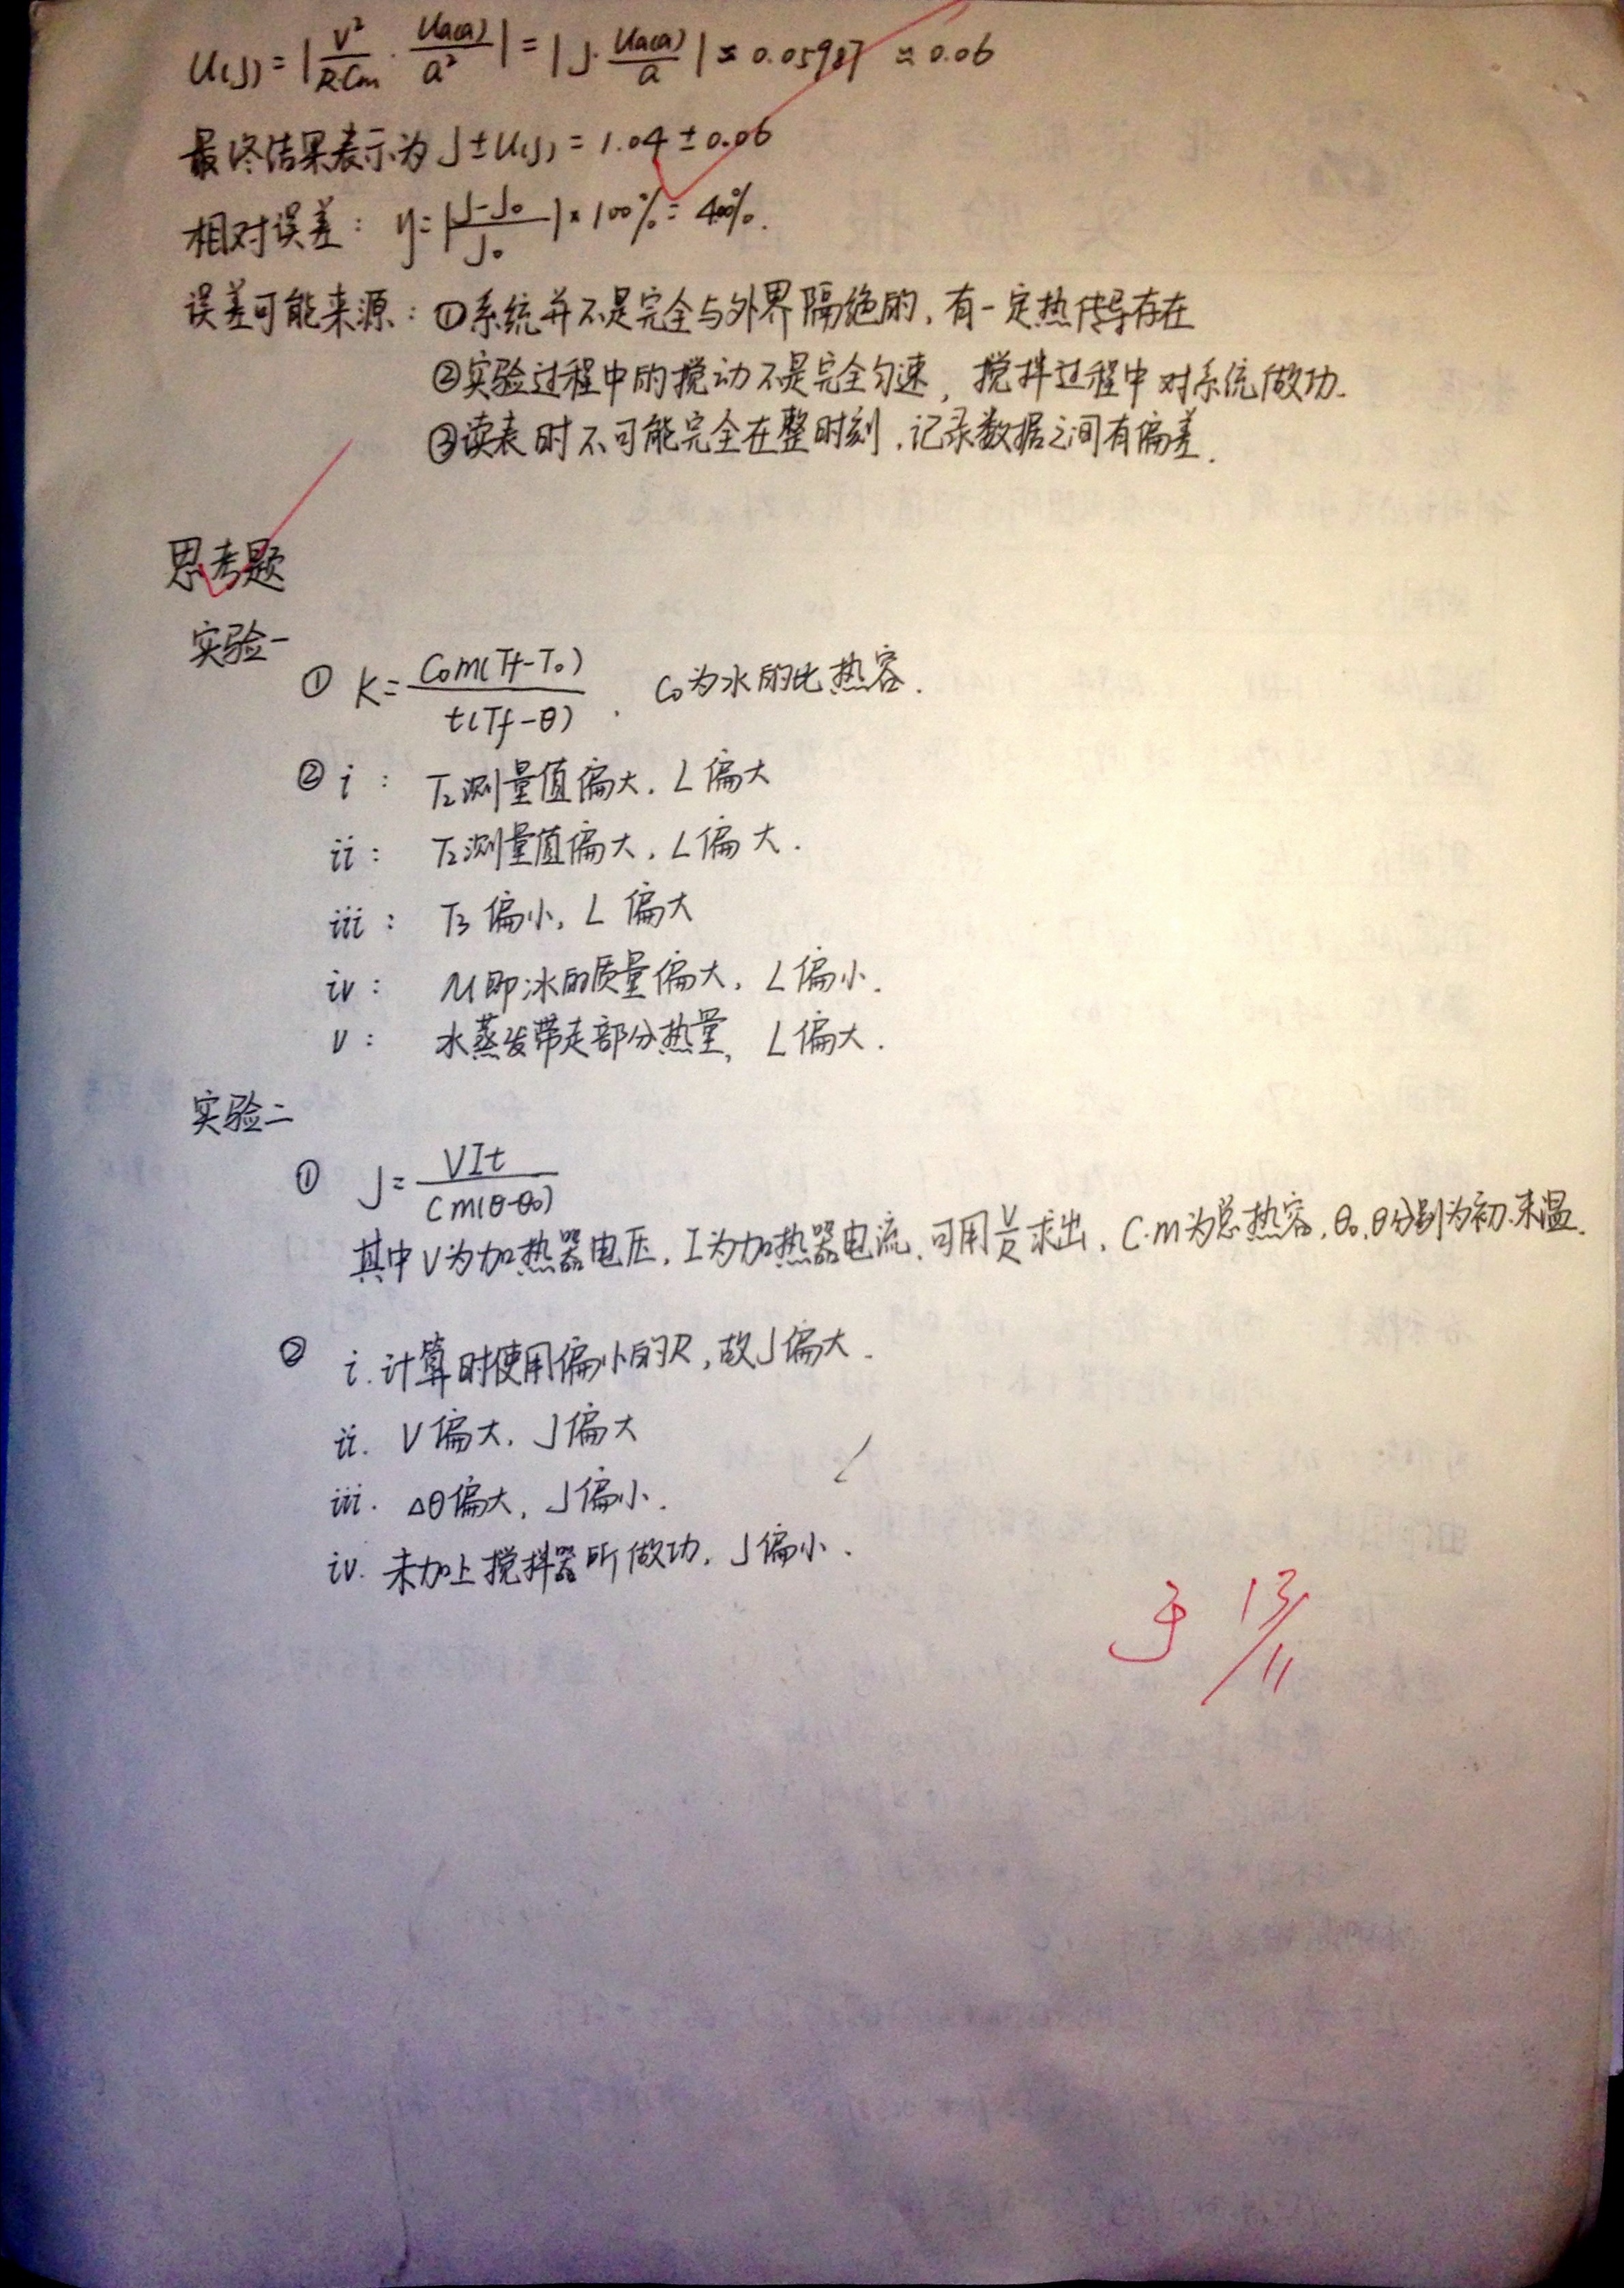 U(J) = |V²/RCm · Ua(a)/a²| = |J · Ua(a)/a| ≈ 0.05987 ≈ 0.06
最终结果表示为 J±U(J) = 1.04 ± 0.06
相对误差： η = |J-J₀/J₀| × 100% = 4.00%.
误差可能来源：①系统并不是完全与外界隔绝的，有一定热传导存在
②实验过程中的搅动不是完全匀速，搅拌过程中对系统做功.
③读表时不可能完全在整时刻，记录数据之间有偏差.
思考题
实验一
① K = C₀m(Tf-T₀)/t(Tf-θ) . C₀为水的比热容.
② i： T₂测量值偏大，L偏大
ii： T₂测量值偏大，L偏大.
iii： T₃偏小，L偏大
iv： M即冰的质量偏大，L偏小.
v： 水蒸发带走部分热量，L偏大.
实验二
① J = VIt/Cm(θ-θ₀)
其中V为加热器电压，I为加热器电流，可用V/R求出，C·m为总热容，θ₀,θ分别为初.末温.
② i.计算时使用偏小的R，故J偏大.
ii. V偏大，J偏大
iii. Δθ偏大，J偏小.
iv. 未加上搅拌器所做功，J偏小.
13/11